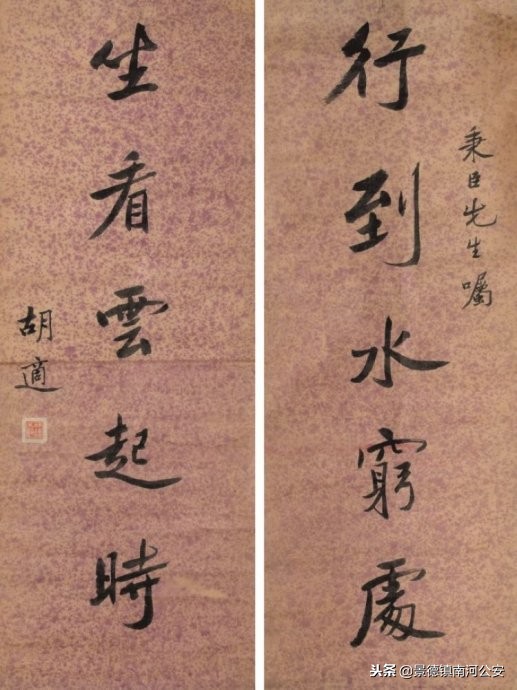 秉臣先生嘱
行到水窮處
坐看雲起時
胡適
头条 @景德镇南河公安